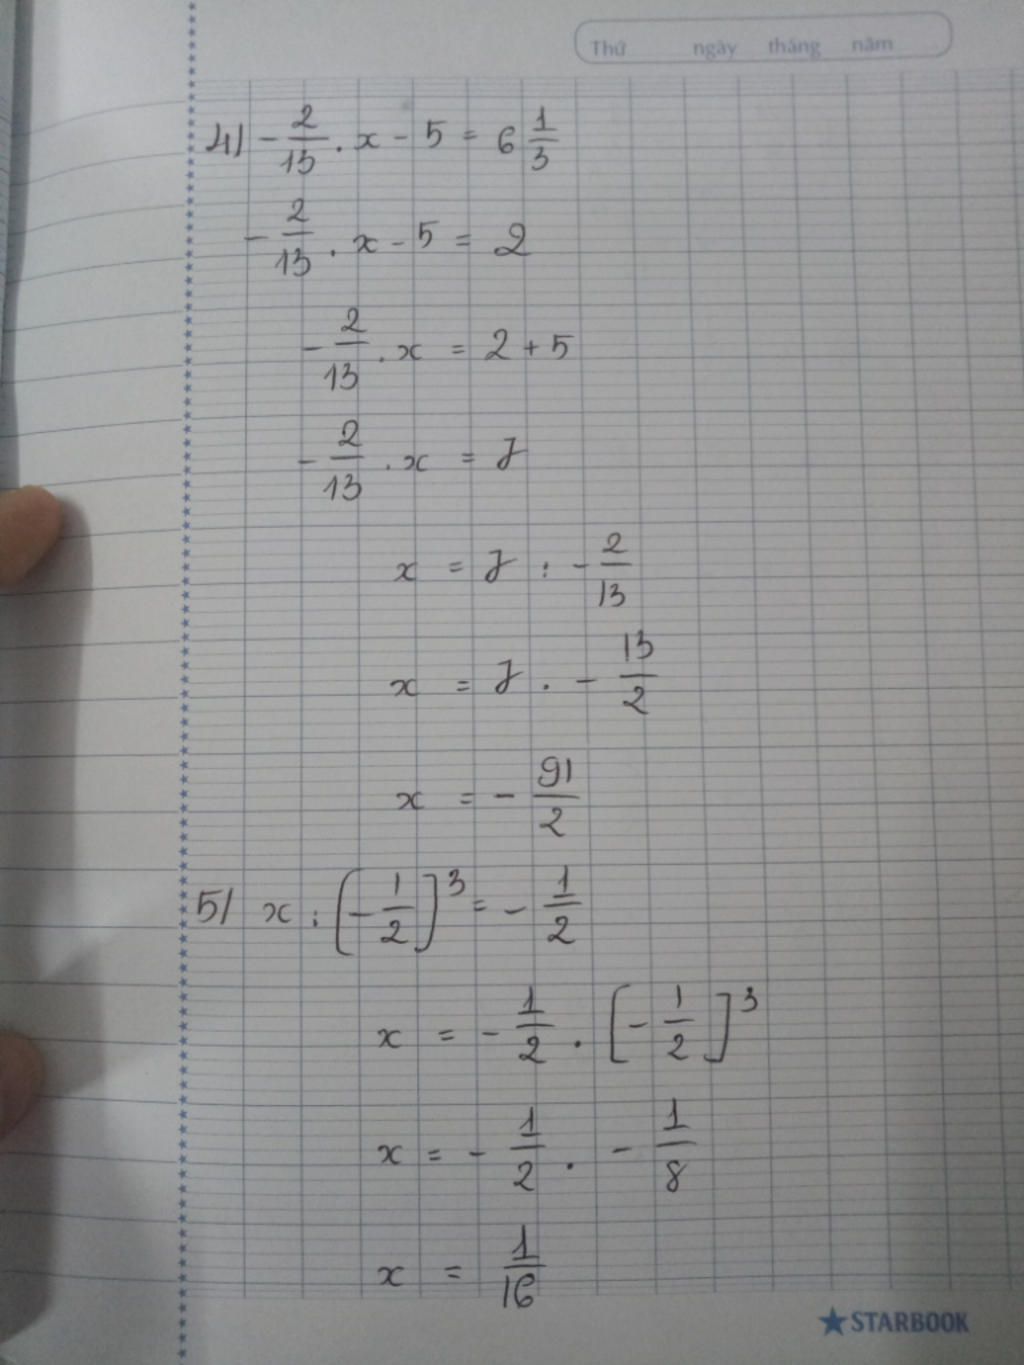 Thứ ngày tháng năm
4) -2/13 . x - 5 = 6 1/3
-2/13 . x - 5 = 2
-2/13 . x = 2 + 5
-2/13 . x = 7
x = 7 : -2/13
x = 7 . -13/2
x = -91/2
5/ x : [-1/2]³ = -1/2
x = -1/2 . [-1/2]³
x = -1/2 . -1/8
x = 1/16
STARBOOK